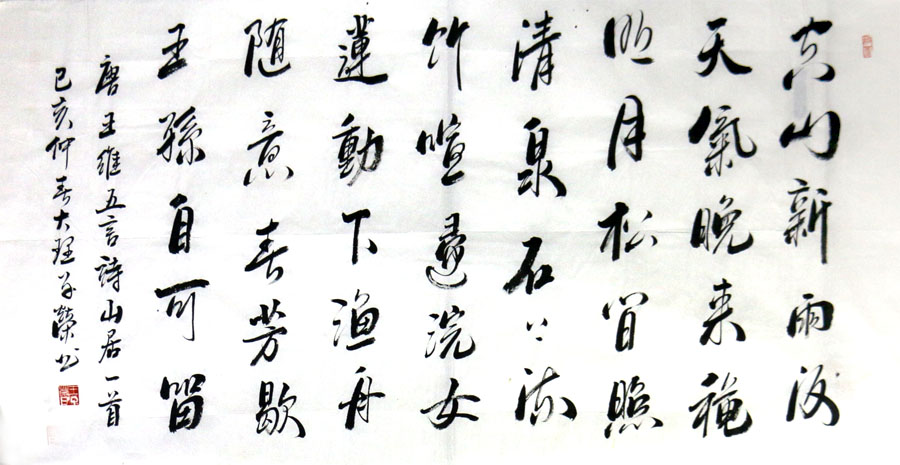 空山新雨後
天氣晚来穐
明月松間照
清泉石上流
竹喧浣女
蓮動下漁舟
随意春芳歇
王孫自可留
唐王維五言詩山居一首
己亥仲春大理榮书